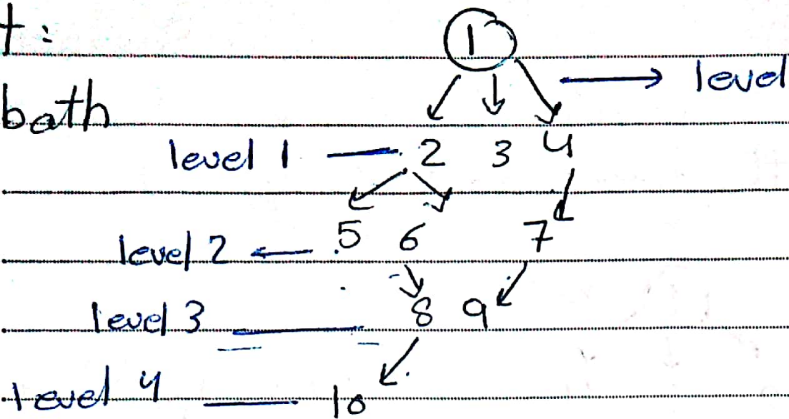 t:
1
level
bath
level 1 2 3 4
level 2 5 6 7
level 3 8 9
level 4 10